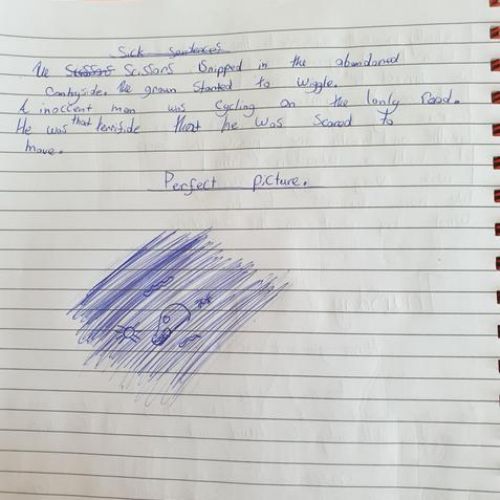 Sick sentences
The Scissors Snipped in the abandoned
Contryside. The grown Started to Wiggle.
A inoccent man was Cycling on the lonly Road.
He was that terrifide that he was Scared to
move.
Perfect picture.